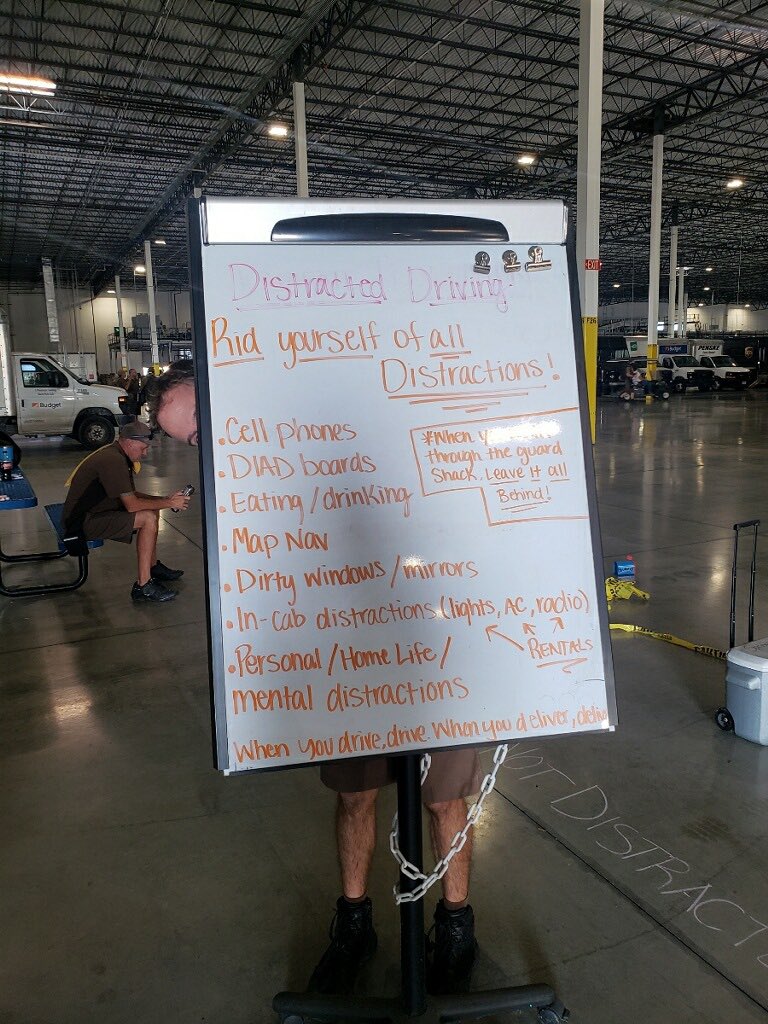 Distracted Driving
Rid yourself of all
Distractions!
• Cell phones
• DIAD boards
• Eating/drinking
• Map Nav
• Dirty windows/mirrors
• In-cab distractions (lights, AC, radio)
RENTALS
• Personal/Home Life/
mental distractions
When you drive, drive. When you deliver, deliv
*When
through the guard
Shack. Leave it all
Behind!
EXIT
F26
Budget
Budget
PENSKE
NOT DISTRACT